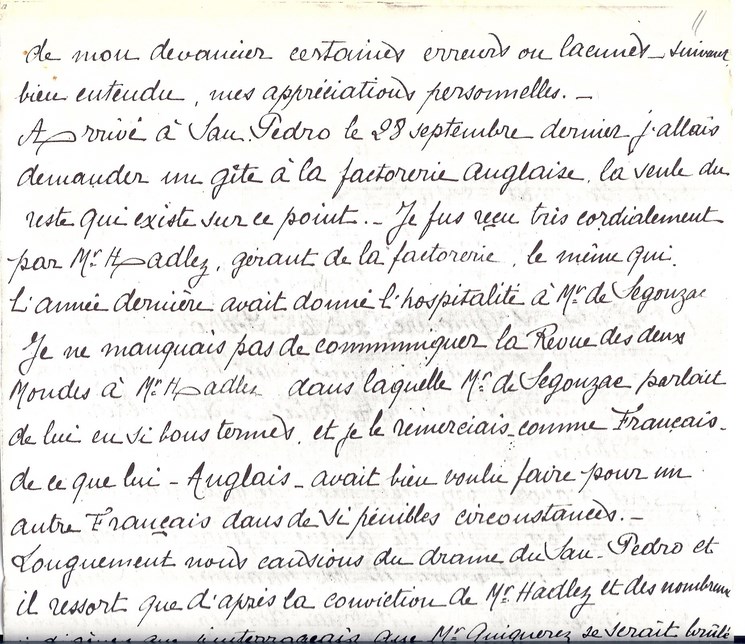 11
de mon devancier certaines erreurs ou lacunes - suivant
bien entendu, mes appréciations personnelles. -
Arrivé à San. Pedro le 28 septembre dernier j'allais
demander un gîte à la factorerie Anglaise, la seule du
reste qui existe sur ce point. - Je fus reçu très cordialement
par Mr. Hadlez, gérant de la factorerie, le même qui
l'année dernière avait donné l'hospitalité à Mr. de Segonzac
Je ne manquais pas de communiquer la Revue des deux
Mondes à Mr. Hadlez dans laquelle Mr. de Segonzac parlait
de lui en si bons termes, et je le remerciais - comme Français -
de ce que lui - Anglais - avait bien voulu faire pour un
autre Français dans de si pénibles circonstances. -
Longuement nous causions du drame du San-Pedro et
il ressort que d'après la conviction de Mr. Hadlez et des nombreux
que Mr. Quiquerez se serait brûlé